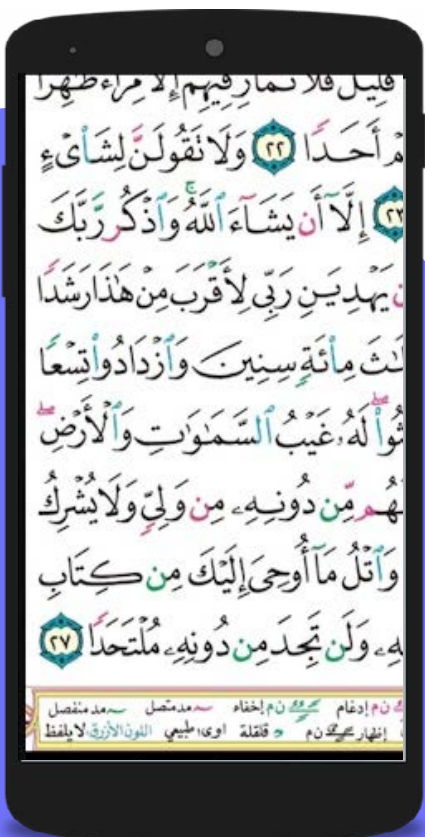 قَلِيلٌ فَلَا تُمَارِ فِيهِمْ إِلَّا مِرَاءً ظَٰهِرًا
مْ أَحَدًا ٢٢ وَلَا تَقُولَنَّ لِشَا۟ىْءٍ
٢٣ إِلَّآ أَن يَشَآءَ ٱللَّهُ ۚ وَٱذْكُر رَّبَّكَ
ن يَهْدِيَنِ رَبِّى لِأَقْرَبَ مِنْ هَٰذَا رَشَدًا
لَٰثَ مِا۟ئَةٍ سِنِينَ وَٱزْدَادُوا۟ تِسْعًا
ثُوا۟ ۖ لَهُۥ غَيْبُ ٱلسَّمَٰوَٰتِ وَٱلْأَرْضِ ۖ
لَهُم مِّن دُونِهِۦ مِن وَلِىٍّ وَلَا يُشْرِكُ
وَٱتْلُ مَآ أُوحِىَ إِلَيْكَ مِن كِتَابِ
تِهِۦ وَلَن تَجِدَ مِن دُونِهِۦ مُلْتَحَدًا ٢٧
ن م إدغام ن م إخفاء مد متصل مد منفصل
إظهار ن م قلقلة اوى، طبيعي اللون الأزرق لا يلفظ